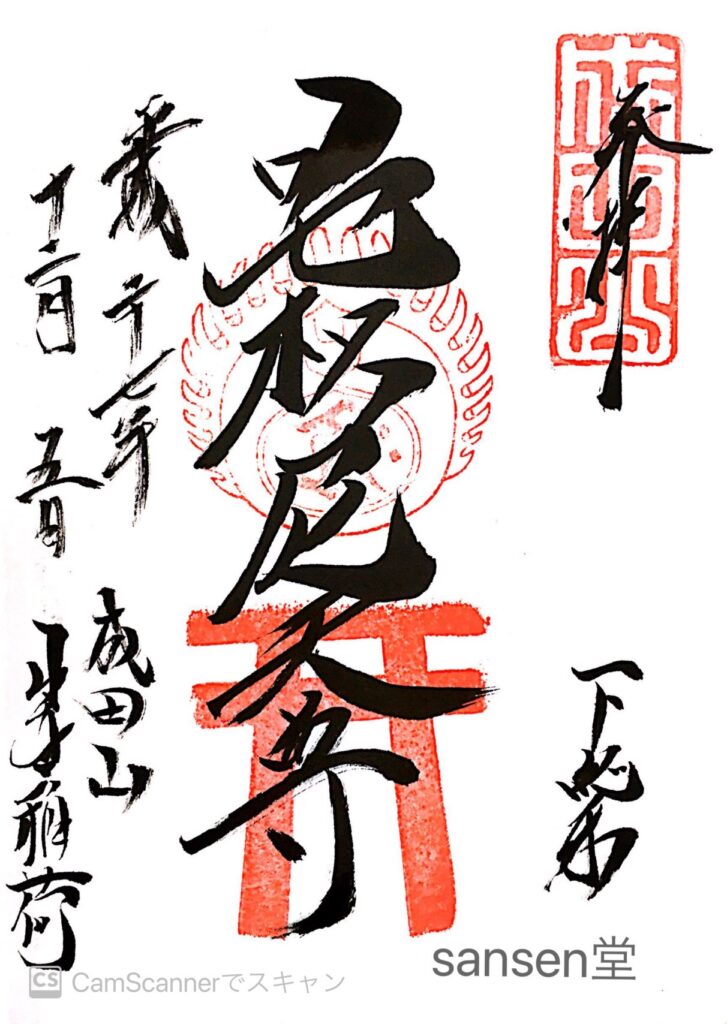 奉拝
成田山
下総
吒枳尼天尊
平成二十七年
成田山
十二月五日
出世稲荷
sansen堂
CS CamScannerでスキャン